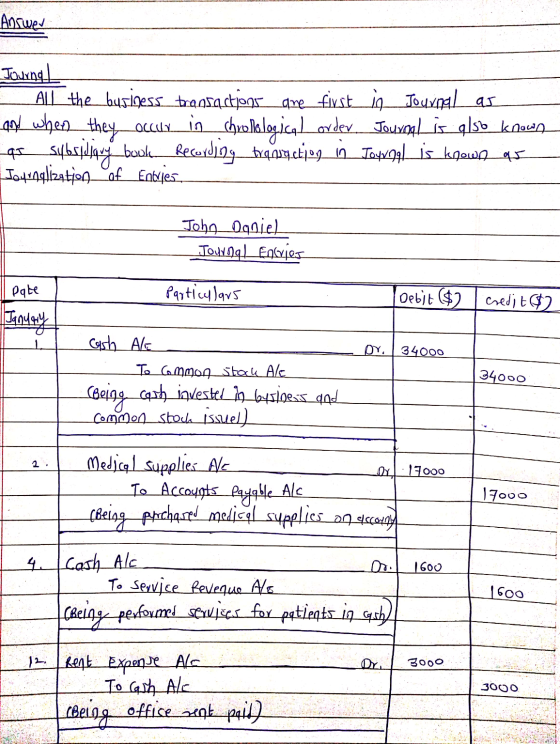 Answer
Journal
All the business transactions are first in Journal as
and when they occur in chrollalogical order. Journal is also known
as subsidiary book. Recording transaction in Journal is known as
Journalization of Entries.
John Daniel
Journal Entries
Date Particulars Debit ($) Credit ($)
January
1. Cash A/c Dr. 34000
To Common stock A/c 34000
(Being cash invested in business and
common stock issued)
2. Medical supplies A/c Dr. 17000
To Accounts Payable A/c 17000
(Being purchased medical supplies on account)
4. Cash A/c Dr. 1600
To Service Revenue A/c 1600
(Being performed services for patients in cash)
12 Rent Expense A/c Dr. 3000
To Cash A/c 3000
(Being office rent paid)